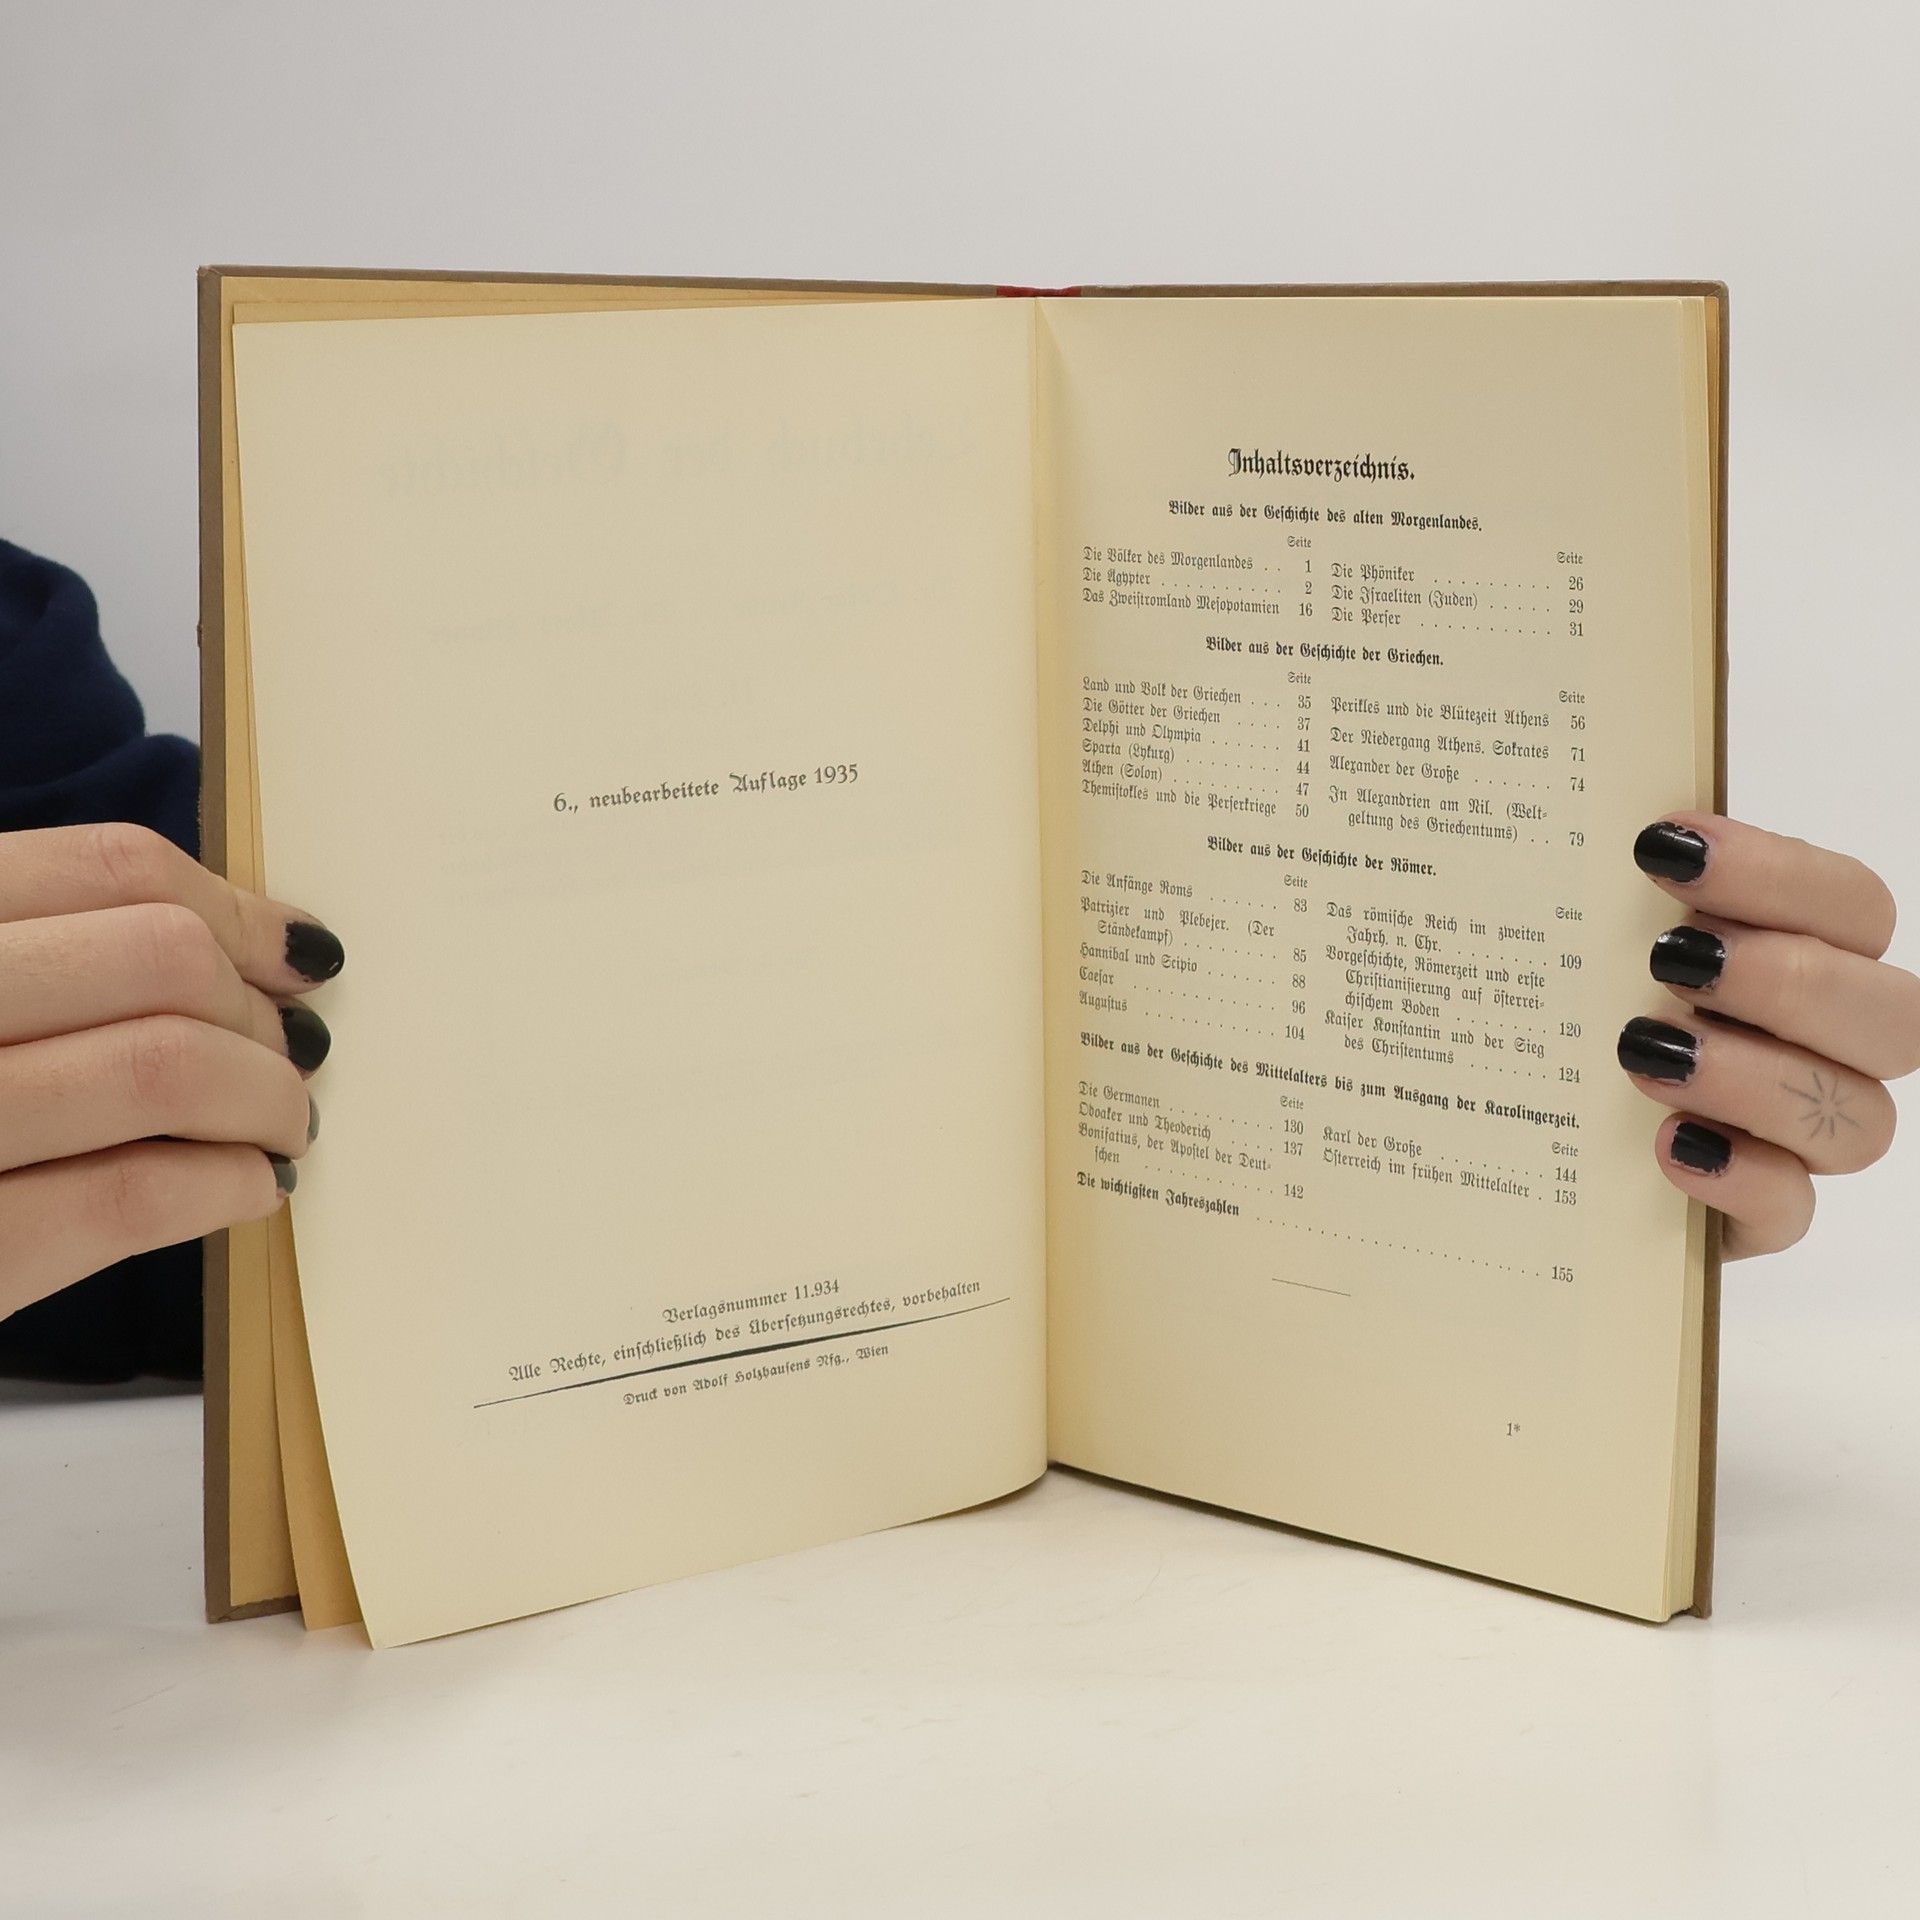 6., neubearbeitete Auflage 1935
Verlagsnummer 11.934
Alle Rechte, einschließlich des Übersetzungsrechtes, vorbehalten
Druck von Adolf Holzhausens Nfg., Wien
Inhaltsverzeichnis.
Bilder aus der Geschichte des alten Morgenlandes.
Seite
Die Völker des Morgenlandes . . 1
Die Ägypter . . . . . . . . . . 2
Das Zweistromland Mesopotamien 16
Seite
Die Phöniker . . . . . . . . . 26
Die Israeliten (Juden) . . . . . 29
Die Perser . . . . . . . . . . 31
Bilder aus der Geschichte der Griechen.
Seite
Land und Volk der Griechen . . . 35
Die Götter der Griechen . . . . 37
Delphi und Olympia . . . . . . 41
Sparta (Lykurg) . . . . . . . . 44
Athen (Solon) . . . . . . . . . 47
Themistokles und die Perserkriege 50
Seite
Perikles und die Blütezeit Athens 56
Der Niedergang Athens. Sokrates 71
Alexander der Große . . . . . . 74
In Alexandrien am Nil. (Welt-
geltung des Griechentums) . . 79
Bilder aus der Geschichte der Römer.
Seite
Die Anfänge Roms . . . . . . 83
Patrizier und Plebejer. (Der
Ständekampf) . . . . . . . . 85
Hannibal und Scipio . . . . . . 88
Caesar . . . . . . . . . . . . 96
Augustus . . . . . . . . . . . 104
Seite
Das römische Reich im zweiten
Jahrh. n. Chr. . . . . . . . . 109
Vorgeschichte, Römerzeit und erste
Christianisierung auf österrei-
chischem Boden . . . . . . . 120
Kaiser Konstantin und der Sieg
des Christentums . . . . . . 124
Bilder aus der Geschichte des Mittelalters bis zum Ausgang der Karolingerzeit.
Seite
Die Germanen . . . . . . . . . 130
Odoaker und Theoderich . . . . 137
Bonifatius, der Apostel der Deut-
schen . . . . . . . . . . . 142
Seite
Karl der Große . . . . . . . . 144
Österreich im frühen Mittelalter . 153
Die wichtigsten Jahreszahlen . . . . . . . . . . . . . . . . . . . 155
1*